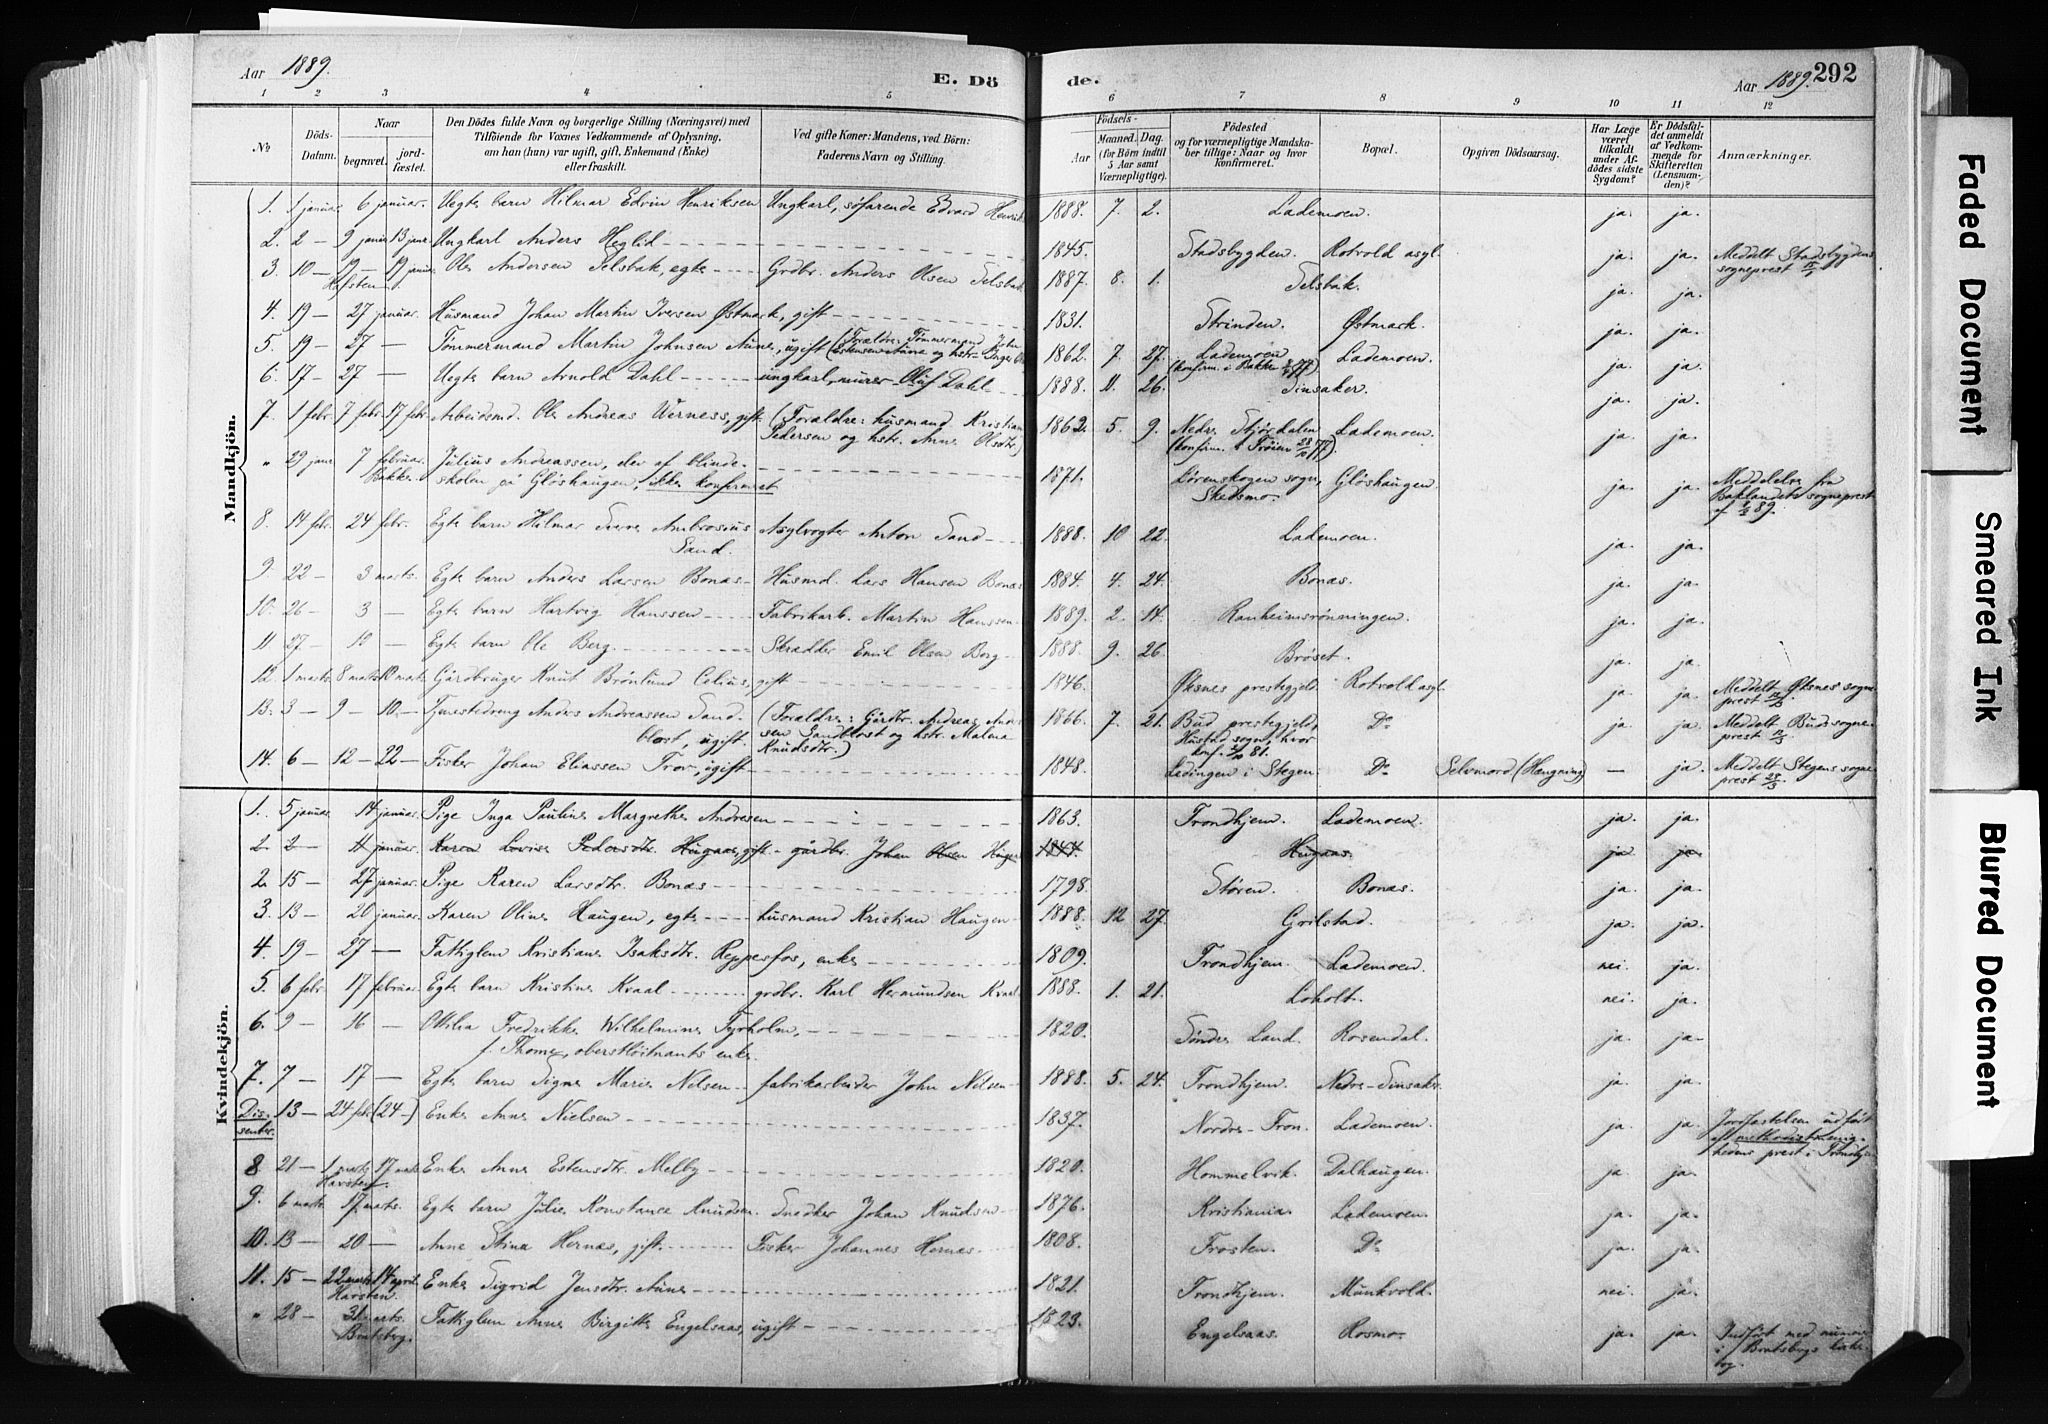 Aar 1889.
E. Dö
de.
Aar 1889. 292
1 2 3 4 5
6 7 8 9 10 11 12
No
Döds-Datum.
Naar
begravet.
jord-fæstet.
Den Dödes fulde Navn og borgerlige Stilling (Næringsvei) med
Tilföiende for Voxnes Vedkommende af Oplysning,
om han (hun) var ugift, gift, Enkemand (Enke)
eller fraskilt.
Ved gifte Koner: Mandens, ved Börn:
Faderens Navn og Stilling.
Födsels-
Aar
Maaned. Dag.
(for Börn indtil
5 Aar samt
Værnepligtige).
Födested
og for værnepligtige Mandska-
ber tillige: Naar og hvor
konfirmeret.
Bopæl.
Opgiven Dödsaarsag.
Har Læge
været
tilkaldt
under Af-
dödes sidste
Sygdom?
Er Dödsfal-
det anmeldt
af Vedkom-
mende for
Skifteretten
(Lensman-
den)?
Anmærkninger.
Mandkjön.
1. 1 januar. 6 januar. Uegte barn Hilmar Edvin Henriksen Ungkarl, søfarende Edvard Henrik 1888. 7. 2. Lademoen. ja. ja.
2. 2 — 9 januar 13 janr. Ungkarl Anders Heglid 1845. Stadsbygden. Rotvold asyl. ja. ja. Meddelt Stadsbygdens
sogneprest
3. 10 — 19 — 19 januar Ole Andersen Selsbak, egte Grdbr. Anders Olsen Selsbak 1887. 8. 1. Selsbak. ja. ja.
Hafsten
4. 19 — 27 januar. Husmand Johan Martin Iversen Østmark, gift 1831. Strinden. Østmark. ja. ja.
5. 19 — 27 — Tømmermand Martin Johnsen Aune, ugift (Forældre: Tømmermand John
Estensen Aune og hstr. Inger 1862. 7. 27. Lademoen Lademoen. ja. ja.
(konfirm. i Bakke 77)
6. 17 — 27 — Uegte barn Arnold Dahl ungkarl, murer Oluf Dahl 1888. 11. 26. Tinsaker. ja. ja.
7. 1 febr. 7 febr. 17 febr. Arbeidsmd. Ole Andreas Werness, gift. (Forældre: husmand Kristian
Pedersen og hstr. Anne Olsdtr.) 1862. 5. 9. Nedre Stjørdalen Lademoen. ja. ja.
" 29 janr. 7 februar. Julius Andreassen, elev af blinde-
Bakke skolen på Gløshaugen, ikke konfirmeret 1871. Lørenskogen sogn, Gløshaugen. ja. ja. Meddelelse fra
Skedsmo. Baklandets sogneprest
af 89.
8. 14 febr. 24 febr. Egte barn Hilmar Sverre Ambrosius Asylvogter Anton Sand 1888. 10 22. Lademoen. ja. ja.
Sand.
9. 22 — 3 marts. Egte barn Anders Larsen Bonæs Husmd. Lars Hansen Bonæs 1884. 4. 24. Bonæs. ja. ja.
10. 26 — 3 — Egte barn Hartvig Hanssen Fabrikarb. Martin Hanssen 1889. 2. 14. Ranheimsrønningen. ja. ja.
11 27 — 10 — Egte barn Ole Berg Skrædder Emil Olsen Berg 1888. 9. 26. Brøset. ja. ja.
12. 1 marts. 8 marts. 10 marts. Gårdbruger Knut Brønlund Celius, gift 1846. Øksnes prestegjeld. Rotvold asyl. ja. ja. Meddelt Øksnes sogne-
prest
13. 3 — 9 — 10. — Tjenestedreng Anders Andreassen Sand- (Forældre: Gårdbr. Andreas Ander-
blost, ugift. sen Sandblost og hstr. Malena
Knudsdtr.) 1866. 7. 21. Bud prestegjeld, Do ja. ja. Meddelt Buds sogne-
Hustad sogn, hvor prest
konf. 81.
14. 6 — 12 — 22 — Fisker Johan Eliassen Trov, ugift 1848. Lødingen i Stegen. Do Selvmord (Hængning) — ja. Meddelt Stegens sogne-
prest 28/3
Kvindekjön.
1. 5 januar. 14 januar. Pige Inga Pauline Margrethe Andresen 1863. Trondhjem. Lademoen. ja. ja.
2. 2 — 11 januar. Karen Lovise Pedersdtr. Hugaas, gift gårdbr. Johan Olsen Hugaas 1844. Hugaas. ja ja
2. 15 — 27 januar. Pige Karen Larsdtr. Bonæs 1798. Støren. Bonæs. ja. ja.
3. 13 — 20 januar. Karen Oline Haugen, egte husmand Kristian Haugen 1888. 12 27. Grilstad. ja. ja.
4. 19 — 27 — Fattiglem Kristiane Isaksdtr. Reppesfos, enke 1809. Trondhjem. Lademoen. nei. ja.
5. 6 febr. 17 februar. Egte barn Kristine Kvaal grdbr. Karl Hermundsen Kvaal 1888. 1. 21. Loholt. nei. ja.
6. 9 — 16 — Ottilia Fredrikke Wilhelmine Tyrholm, 1820. Søndre Land. Rosendal. ja. ja
f. Thome, oberstløitnants enke.
7. 7 — 17 — Egte barn Signe Marie Nilsen fabrikarbeider John Nilsen 1888. 5. 24. Trondhjem. Nedre Tinsaker. ja. ja.
Dis-
senter. 13 — 24 febr. (24 —) Enke Anne Nielsen 1837. Nordre Fron. Lademoen. ja. ja. Jordfæstelsen udført
af methodistmenig-
hedens prest i Trondhjem
8 21 — 1 marts 17 marts Enke Anne Estensdtr. Melby 1820. Hommelvik. Dalhaugen. ja. ja.
Havstein.
9. 6 marts. 17. marts. Egte barn Julie Konstance Knudsen. Snedker Johan Knudsen 1876. Kristiania. Lademoen. ja. ja.
10. 13 — 20 — Anne Stina Hernæs, gift. Fisker Johannes Hernæs. 1808. Frosten. Do ja. ja.
11. 15 — 22 marts 14 april. Enke Sigrid Jensdtr. Aune 1821. Trondhjem. Munkvold. nei. ja.
Havsten.
" 28 — 31 marts. Fattiglem Anne Birgitte Engelsaas, ugift 1823. Engelsaas. Rosmo. ja. ja. Indført med nummer
Bratsberg. i Bratsbergs kirke-
bog.
Faded Document
Smeared Ink
Blurred Document